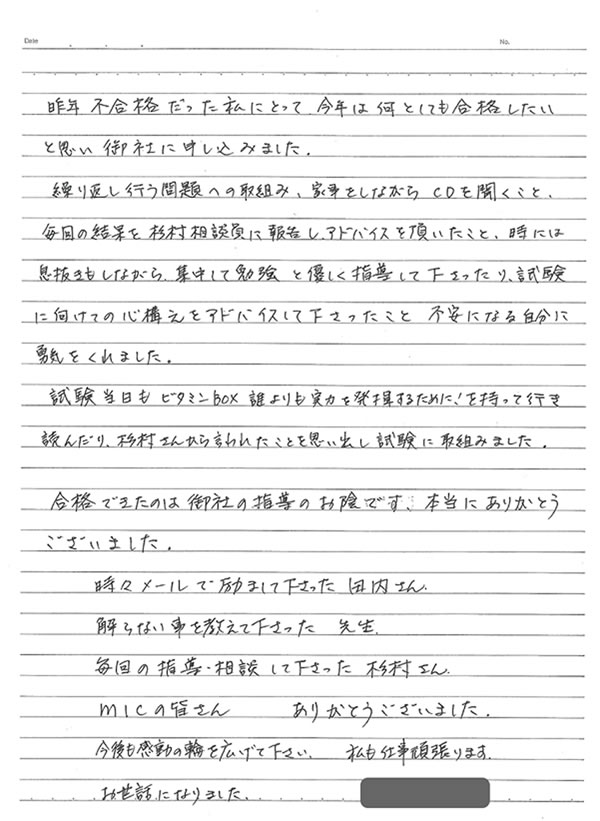 Date . . .
No.
昨年 不合格だった私にとって 今年は何としても合格したい
と思い 御社に申し込みました.
繰り返し行う問題への取組み、家事をしながら CDを聞くこと、
毎回の結果を杉村相談員に報告し、アドバイスを頂いたこと、時には
息抜きもしながら、集中して勉強 と優しく指導して下さったり、試験
に向けての心構えをアドバイスして下さったこと 不安になる自分に
勇気をくれました.
試験当日も ビタミンBOX 誰よりも実力を発揮するために!を持って行き
読んだり、杉村さんから言われたことを思い出し試験に取組みました.
合格できたのは 御社の指導のお陰です、本当にありがとう
ございました.
時々メールで励まして下さった 田内さん.
解らない事を教えて下さった 先生.
毎回の指導・相談して下さった 杉村さん.
MICの皆さん ありがとうございました.
今後も感動の輪を広げて下さい. 私も仕事頑張ります.
お世話になりました.